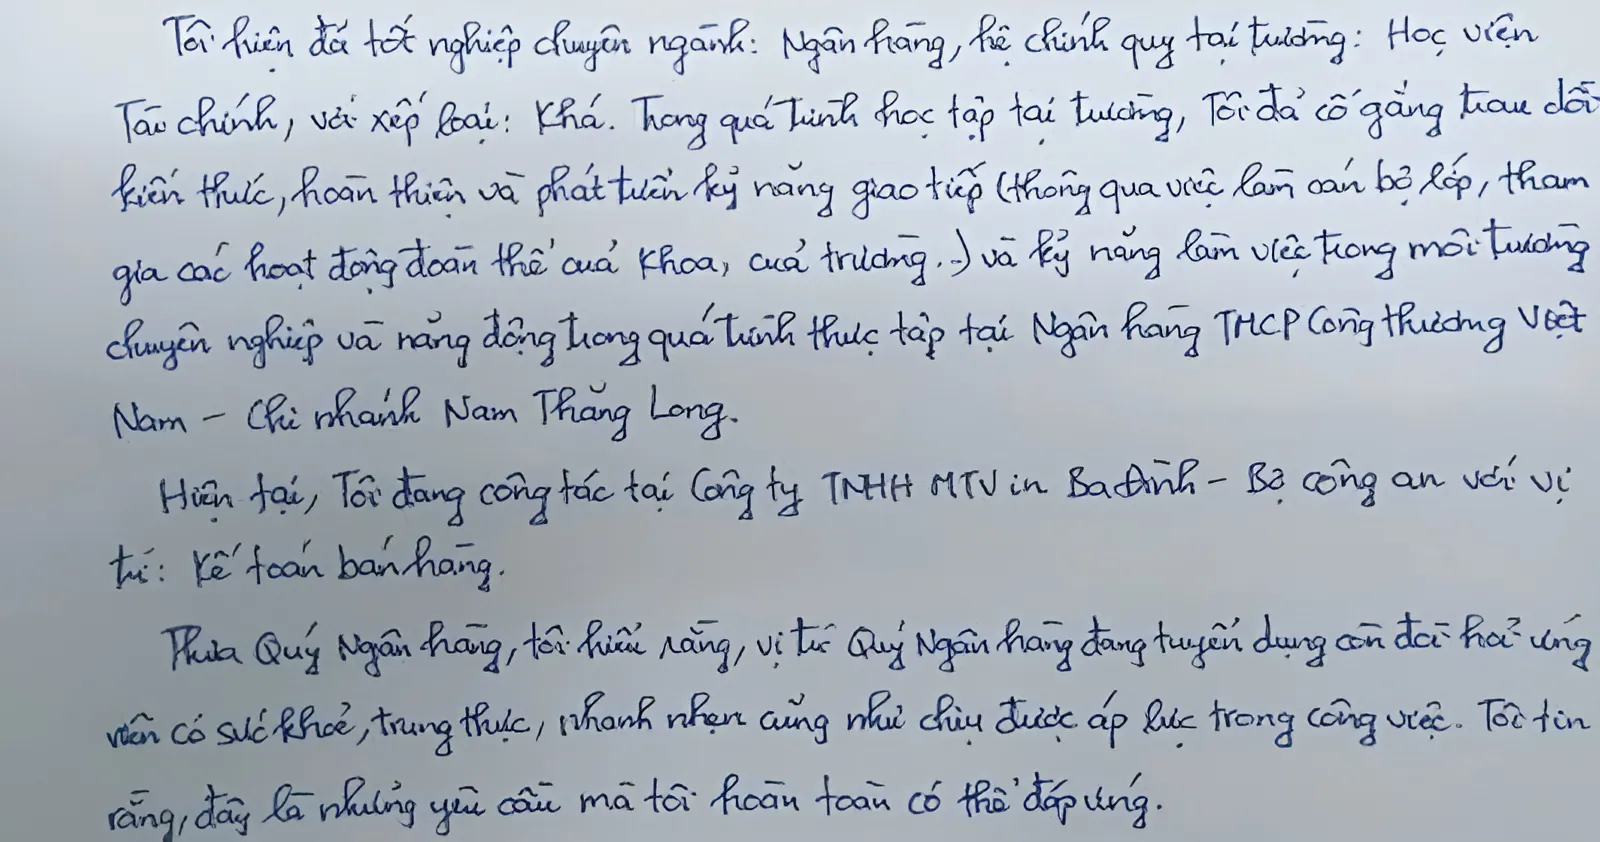 Tôi hiện đã tốt nghiệp chuyên ngành: Ngân hàng, hệ chính quy tại trường: Học viện
Tài chính, với xếp loại: Khá. Trong quá trình học tập tại trường, Tôi đã cố gắng trau dồi
kiến thức, hoàn thiện và phát triển kỹ năng giao tiếp (thông qua việc làm cán bộ lớp, tham
gia các hoạt động đoàn thể của Khoa, của trường..) và kỹ năng làm việc trong môi trường
chuyên nghiệp và năng động trong quá trình thực tập tại Ngân hàng TMCP Công thương Việt
Nam - Chi nhánh Nam Thăng Long.
Hiện tại, Tôi đang công tác tại Công ty TNHH MTV in Ba Đình - Bộ công an với vị
trí: Kế toán bán hàng.
Thưa Quý Ngân hàng, tôi hiểu rằng, vị trí Quý Ngân hàng đang tuyển dụng cần đòi hỏi ứng
viên có sức khoẻ, trung thực, nhanh nhẹn cũng như chịu được áp lực trong công việc. Tôi tin
rằng, đây là những yêu cầu mà tôi hoàn toàn có thể đáp ứng.